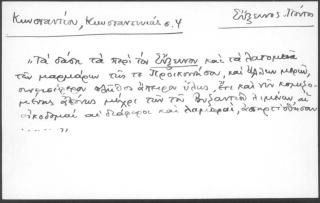 Κωνσταντίου, Κωνσταντινιάς σ. 4
Εὔξεινος Πόντος
"Τὰ δάση τὰ περὶ τὸν Εὔξεινον καὶ τὰ λατομεῖα
τῶν μαρμάρων τῆς τε Προικονήσου, καὶ ἄλλων μερῶν,
συνεισέφερον πλῆθος ἄπειρον ὕλης, ἔτι καὶ νῦν κομιζο-
μένης ἀπόνως μέχρι τῶν τοῦ Βυζαντίου λιμένων, αἱ
οἰκοδομαὶ αἱ διάφοροι καὶ λαμπραὶ, ἀπηρτίσθησαν
. . . . . . "